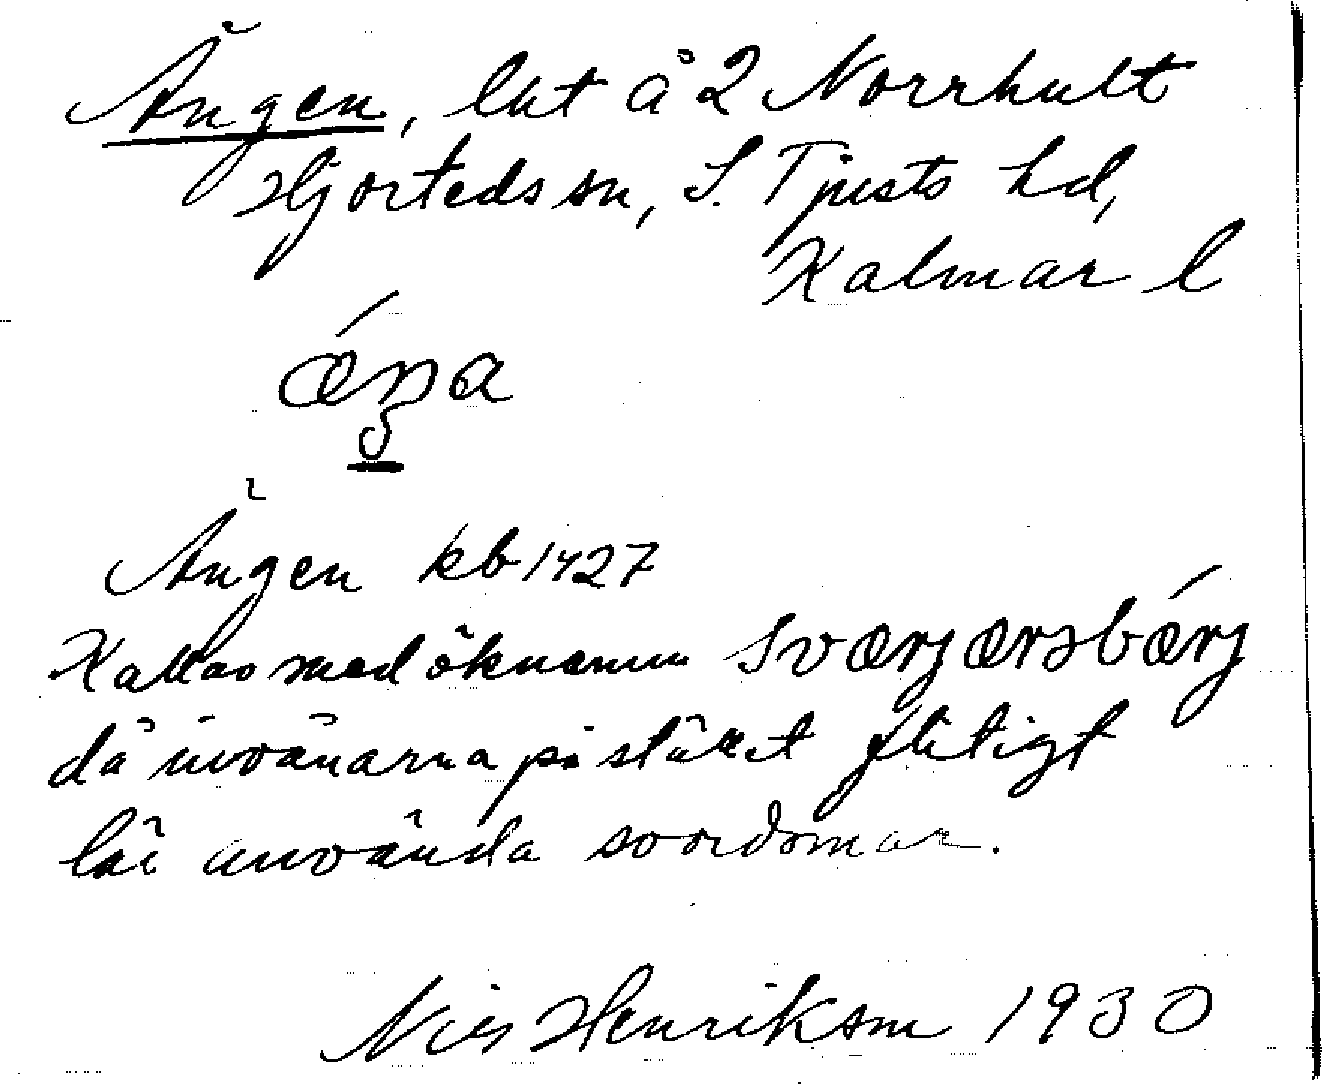 Ängen, lht å 2 Norrhult
Hjorteds sn, S. Tjusts hd,
Kalmar l
ǽŋa
Ängen kb 1427
Kallas med öknamn sværjærsbǽrj
då invånarna på stället flitigt
lär använda svordomar.
Nils Henriksson 1930